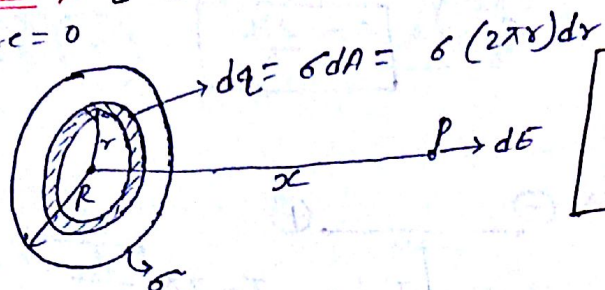 c = 0
dq = σdA = σ(2πr)dr
r
P → dE
x
R
σ